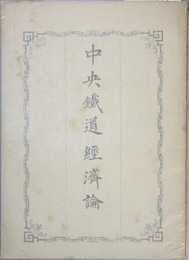 中央鐵道經濟論